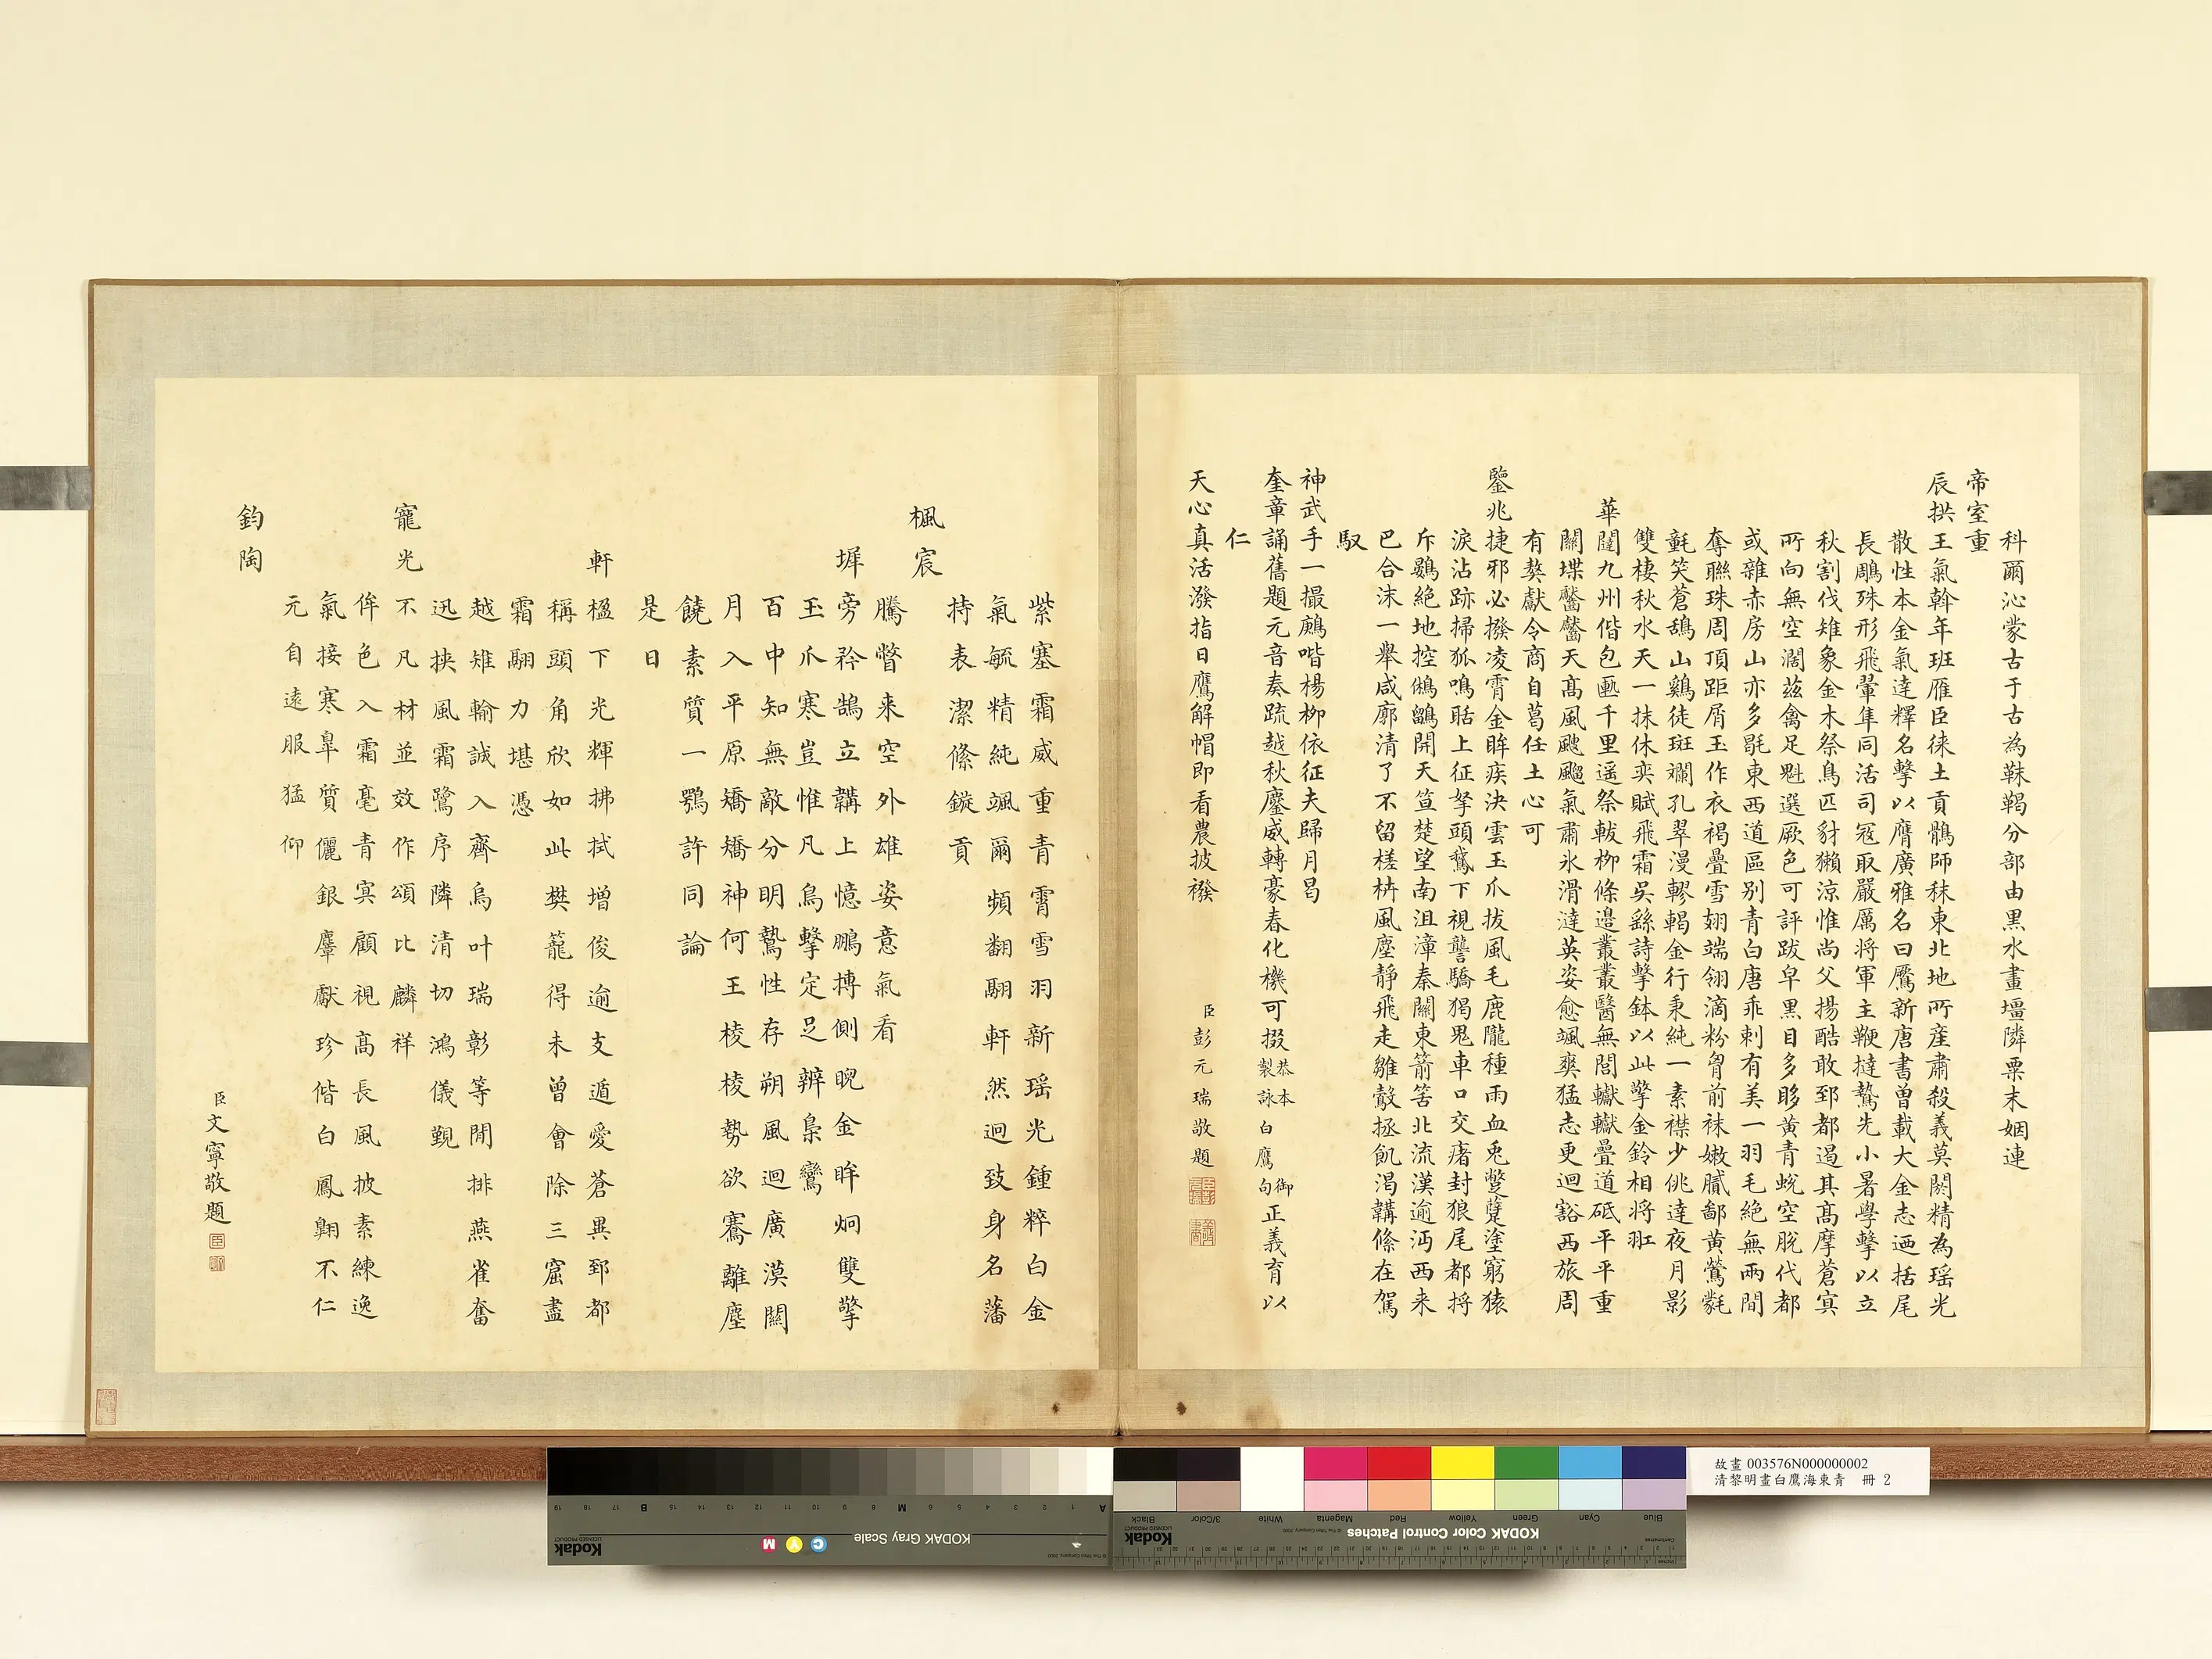 科爾沁蒙古于古為靺鞨分部由黑水畫壇隣粟末姻連
帝室重
辰拱王氣斡年班雁臣徠土貢鶻師秣東北地所産肅殺義莫閼精為瑶光
散性本金氣達釋名擊以膺廣雅名曰鴈新唐書曾載大金志迺括尾
長鵰殊形飛翬隼同活司冦取嚴厲将軍主鞭撻鷙先小暑學擊以立
秋割伐雉象金木祭鳥匹豺獺涼惟尚父揚酷敢郅都遏其髙摩蒼寘
所向無空濶茲禽足魁選厥色可評跋皁黒目多眵黃青蛻空脫代都
或雜赤房山亦多毾東西道區别青白唐乖剌有美一羽毛絶無兩間
奪聯珠周頂距屑玉作衣褐疊雪翅端翎滴粉胷前袜嫩膩鄙黄鶯毿
毾笑蒼鴰山鷄徒斑斕孔翠漫轇轕金行秉純一素襟少佻達夜月影
雙棲秋水天一抹休奕賦飛霜吳繇詩擊鉢以此擎金鈴相将䎊
華闥九州偕包匭千里遥祭軷柳條邉叢叢醫無閭巘巘疊道砥平平重
關堞齾齾天髙風颲颲氣肅氷滑澾英姿愈颯爽猛志更迴豁西旅周
有獒獻令商自葛任土心可
鑒兆捷邪必撥凌霄金眸疾決雲玉爪拔風毛鹿隴種雨血兎躄躠塗窮猿
淚沾跡掃狐鳴聒上征拏頭鵞下視讋驕猲鬼車口交㾖封狼尾都捋
斥鷃絶地控鵂鶹開天笪楚望南沮漳秦關東箭筈北流漢逾沔西来
巴合沫一舉咸廓清了不留槎枿風塵靜飛走雛鷇拯飢渇韝絛在駕
馭
神武手一撮鷓喈楊柳依征夫歸月曷
奎章誦舊題元音奏疏越秋鏖威轉豪春化機可掇恭本御製詠白鷹句正義育以
仁
天心真活潑指日鷹解帽即看農披襏
臣彭元瑞敬題
紫塞霜威重青霄雪羽新瑶光鍾粹白金
氣毓精純颯爾頻翻翮軒然迴致身名藩
持表潔絛鏇貢
楓宸
騰瞥来空外雄姿意氣看
墀旁矜鵠立韝上憶鵬摶側睨金眸炯雙擎
玉爪寒豈惟凡鳥擊定足辨梟鸞
百中知無敵分明鷙性存朔風迴廣漠闗
月入平原矯矯神何王棱棱勢欲騫離塵
饒素質一鶚許同論
是日
軒楹下光輝拂拭增俊逾支遁愛蒼異郅都
稱頭角欣如此樊籠得未曾會除三窟盡
霜翮力堪憑
越雉輸誠入齊烏叶瑞彰等閒排燕雀奮
迅挟風霜鷺序隣清切鴻儀覲
寵光
不凡材並效作頌比麟祥
侔色入霜毫青冥顧視髙長風披素練逸
氣接寒臯質儷銀麞獻珍偕白鳳翺不仁
元自遠服猛仰
鈞陶
臣文寧敬題
故畫 003576N000000002
清黎明畫白鷹海東青 冊 2
KODAK Gray Scale
KODAK Color Control Patches
Kodak
LICENSED PRODUCT
Blue
Cyan
Green
Yellow
Red
Magenta
White
3/Color
Black